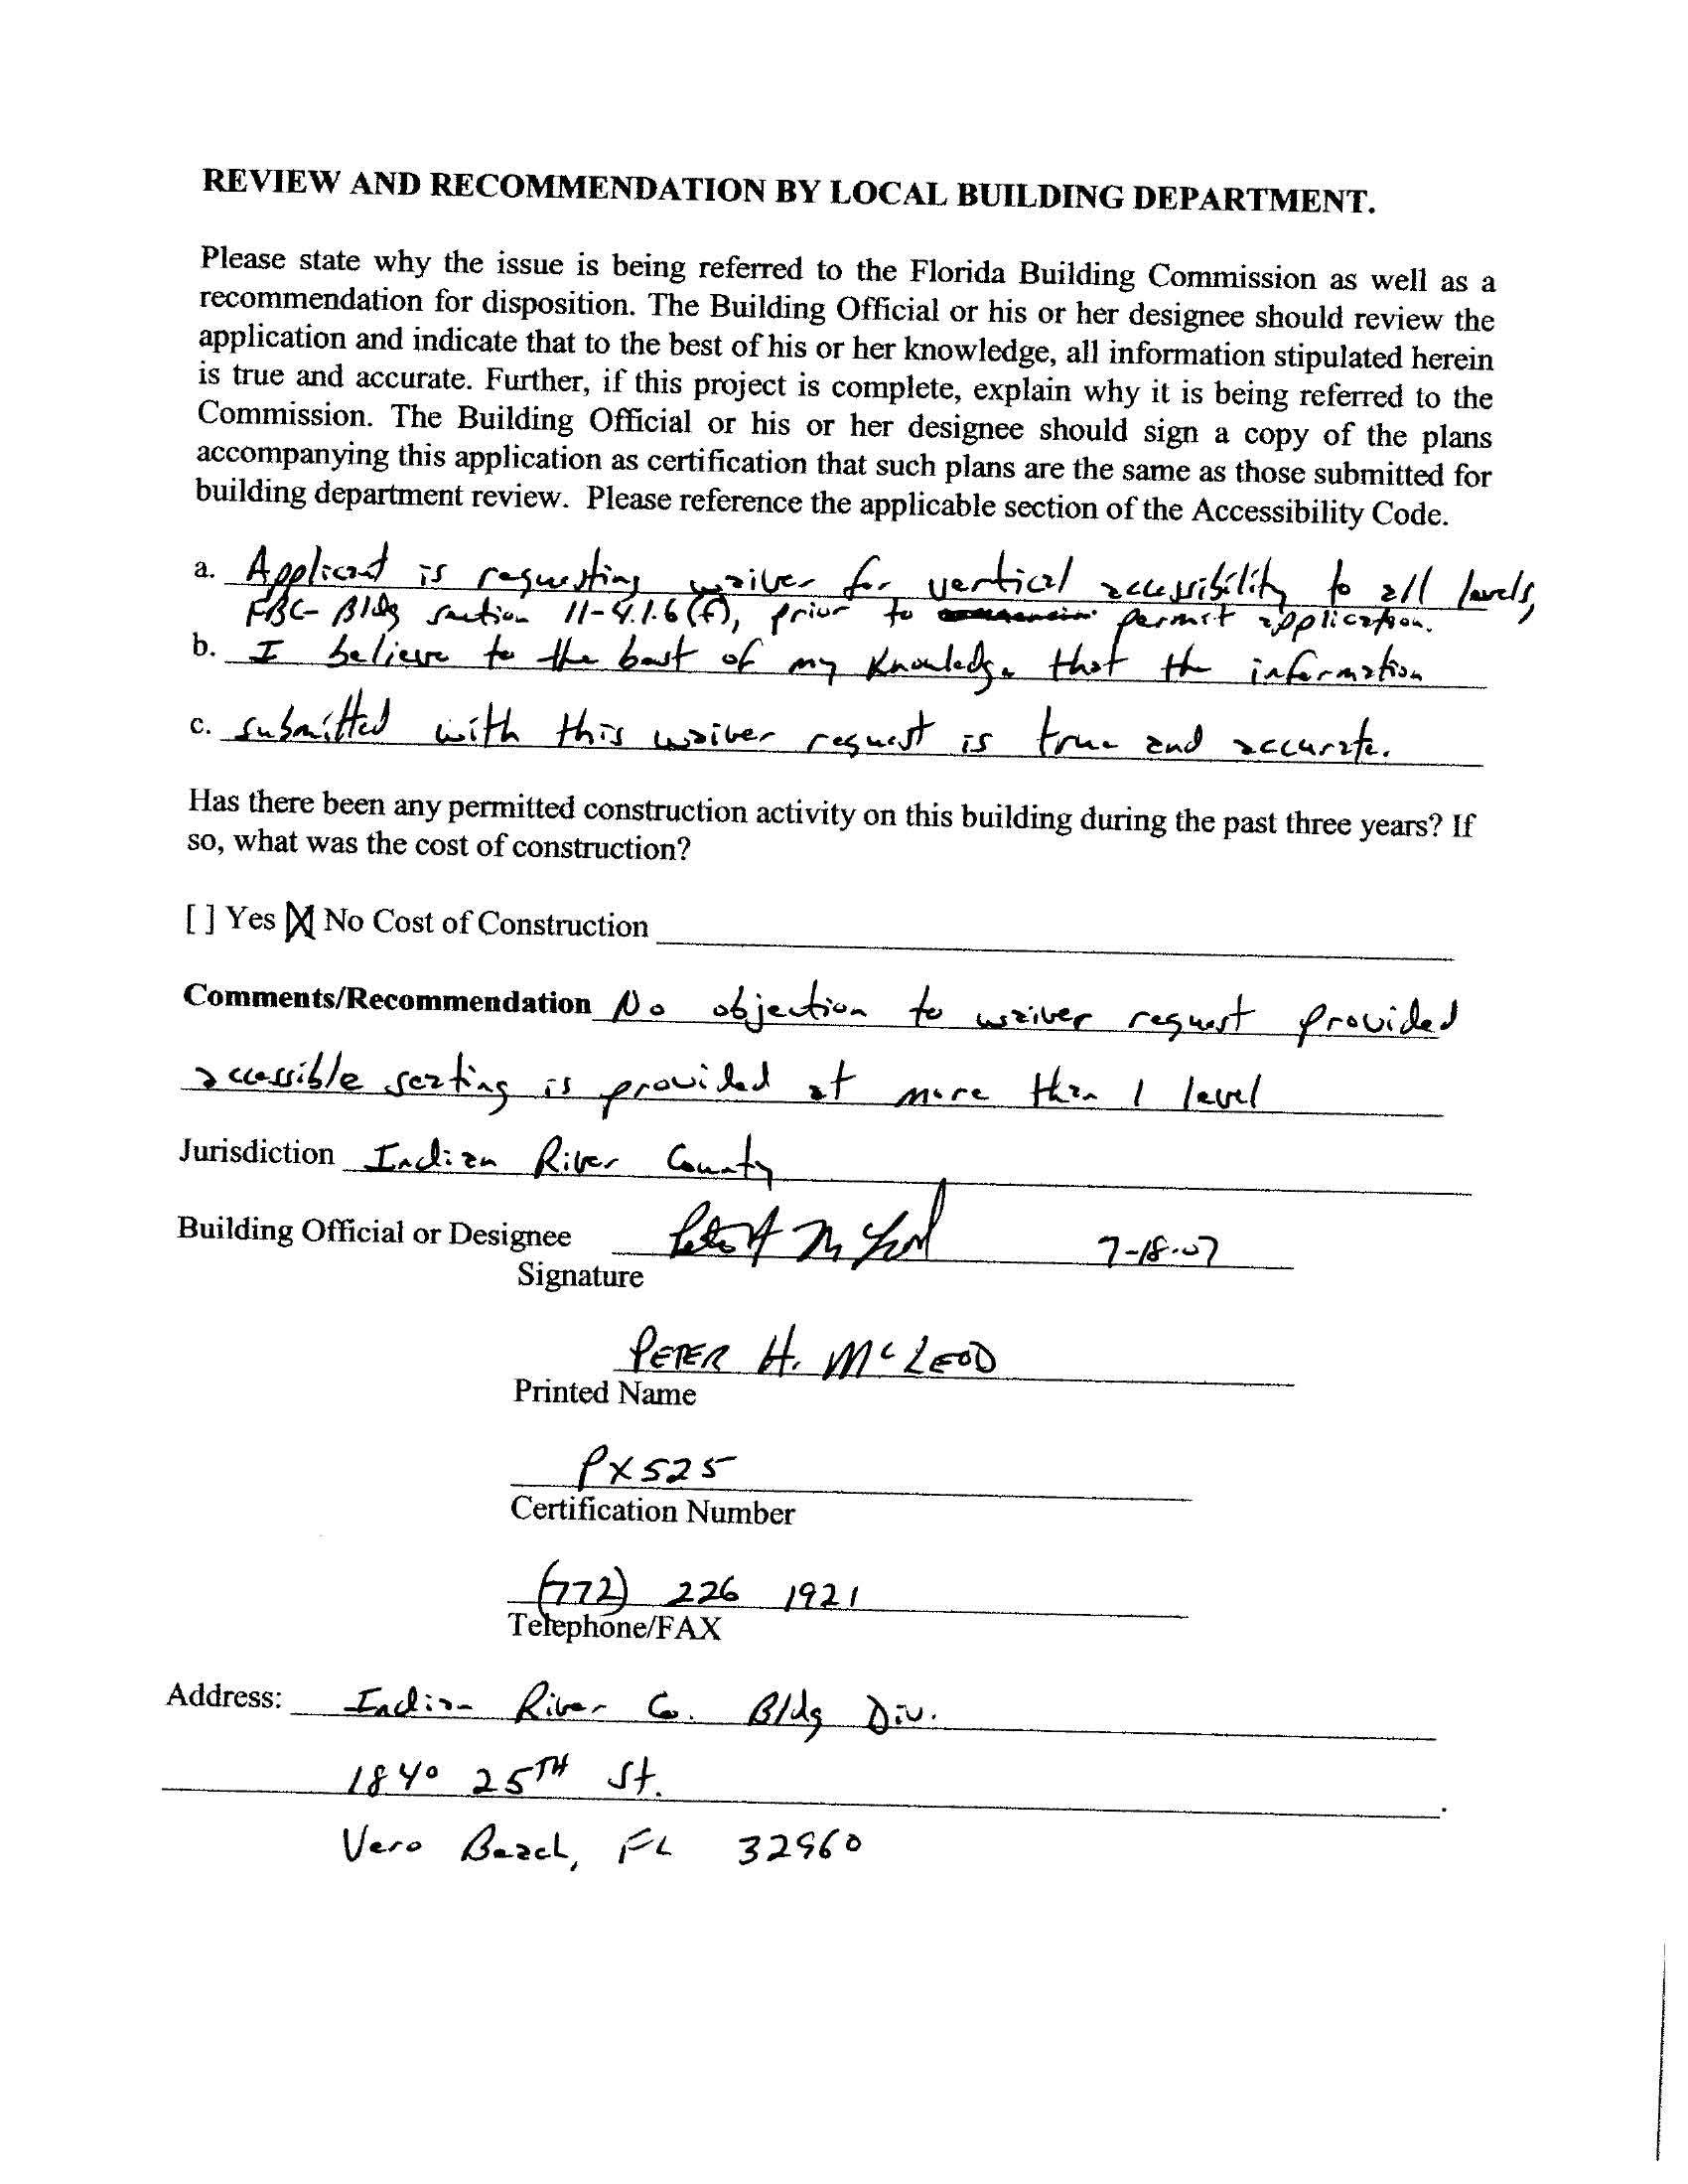 REVIEW AND RECOMMENDATION BY LOCAL BUILDING DEPARTMENT.
Please state why the issue is being referred to the Florida Building Commission as well as a
recommendation for disposition. The Building Official or his or her designee should review the
application and indicate that to the best of his or her knowledge, all information stipulated herein
is true and accurate. Further, if this project is complete, explain why it is being referred to the
Commission. The Building Official or his or her designee should sign a copy of the plans
accompanying this application as certification that such plans are the same as those submitted for
building department review. Please reference the applicable section of the Accessibility Code.
a. Applicant is requesting waiver for vertical accessibility to all levels,
FBC- Bldg section 11-4.1.6(f), prior to permit application.
b. I believe to the best of my knowledge that the information
c. submitted with this waiver request is true and accurate.
Has there been any permitted construction activity on this building during the past three years? If
so, what was the cost of construction?
[ ] Yes [X] No Cost of Construction
Comments/Recommendation No objection to waiver request provided
accessible seating is provided at more than 1 level
Jurisdiction Indian River County
Building Official or Designee 7-18-07
Signature
PETER H. McLEOD
Printed Name
PX525
Certification Number
(772) 226 1921
Telephone/FAX
Address: Indian River Co. Bldg Div.
1840 25TH St.
Vero Beach, FL 32960